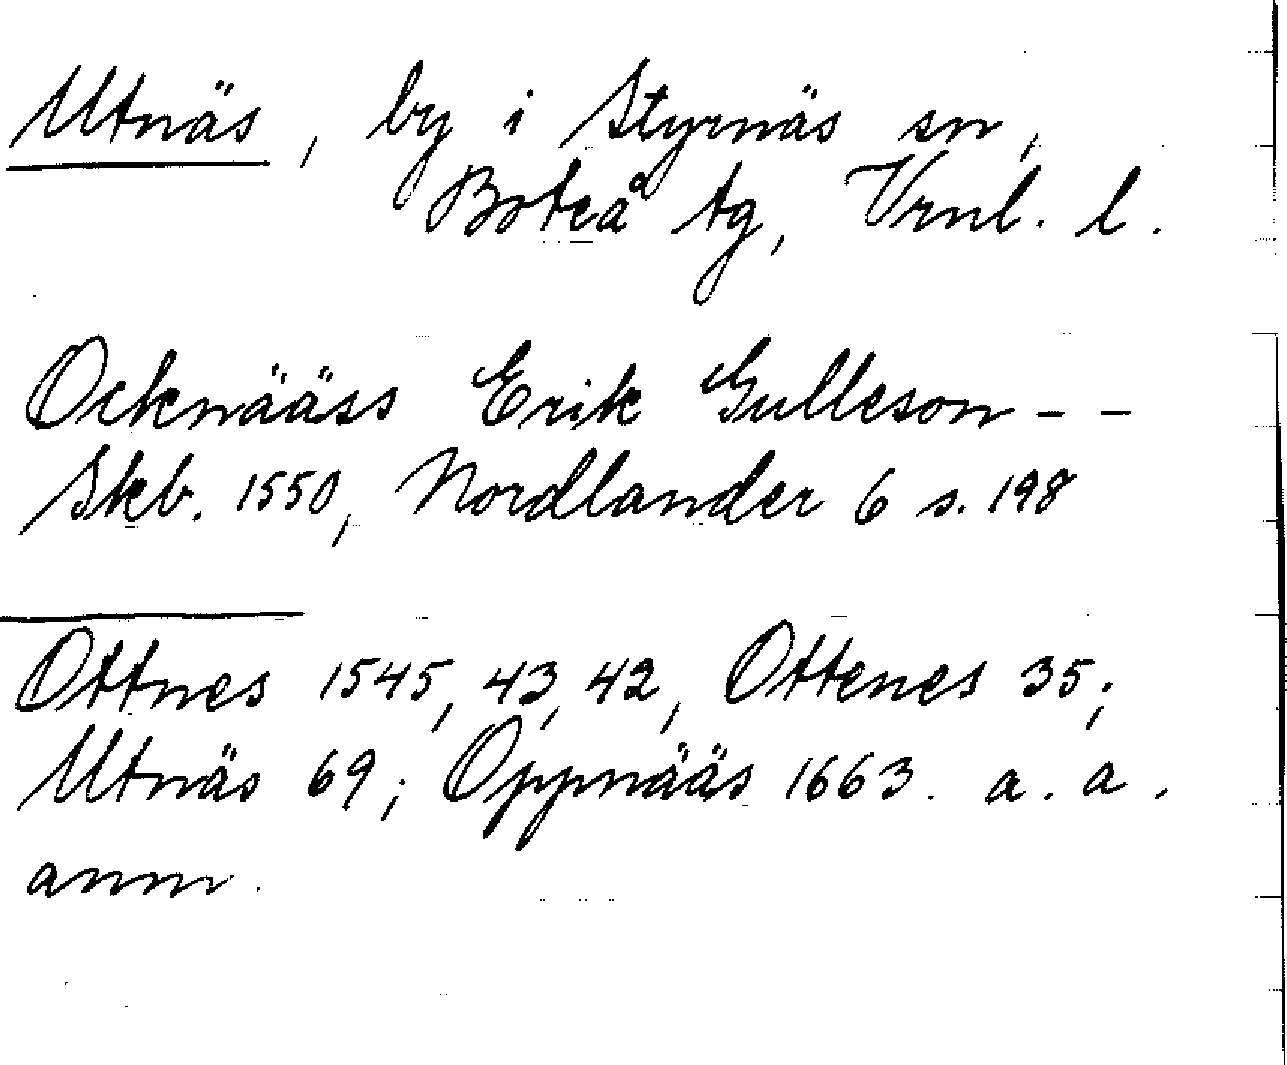 Utnäs, by i Styrnäs sn,
Boteå tg, Vrnl. l.
Ocknääss Erik Gulleson - -
Skb. 1550, Nordlander 6 s. 198
Ottnes 1545, 43, 42, Ottenes 35;
Utnäs 69; Oppnääs 1663. a. a.
anm.